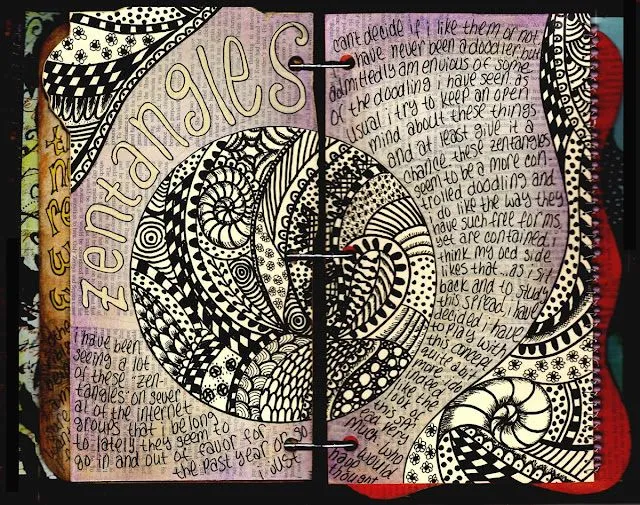 zentangles
i have been
seeing a lot
of these zen-
tangles on sever
al of the internet
groups that i belong
to lately. they seem to
go in and out of favor for
the past year or so
i just
cant decide if i like them or not
i have never been a doodler but
admittedly am envious of some
of the doodling i have seen as
usual i try to keep an open
mind about these things
and at least give it a
chance these zentangles
seem to be a more con-
trolled doodling and
i do like the way they
have such free forms
yet are contained. i
think my ocd side
likes that...as i sit
back and to study
this spread, i have
decided i have
to play with
this concept
quite a bit
more. i do
like the
look of
this spr
ead very
much who
would
have
thought